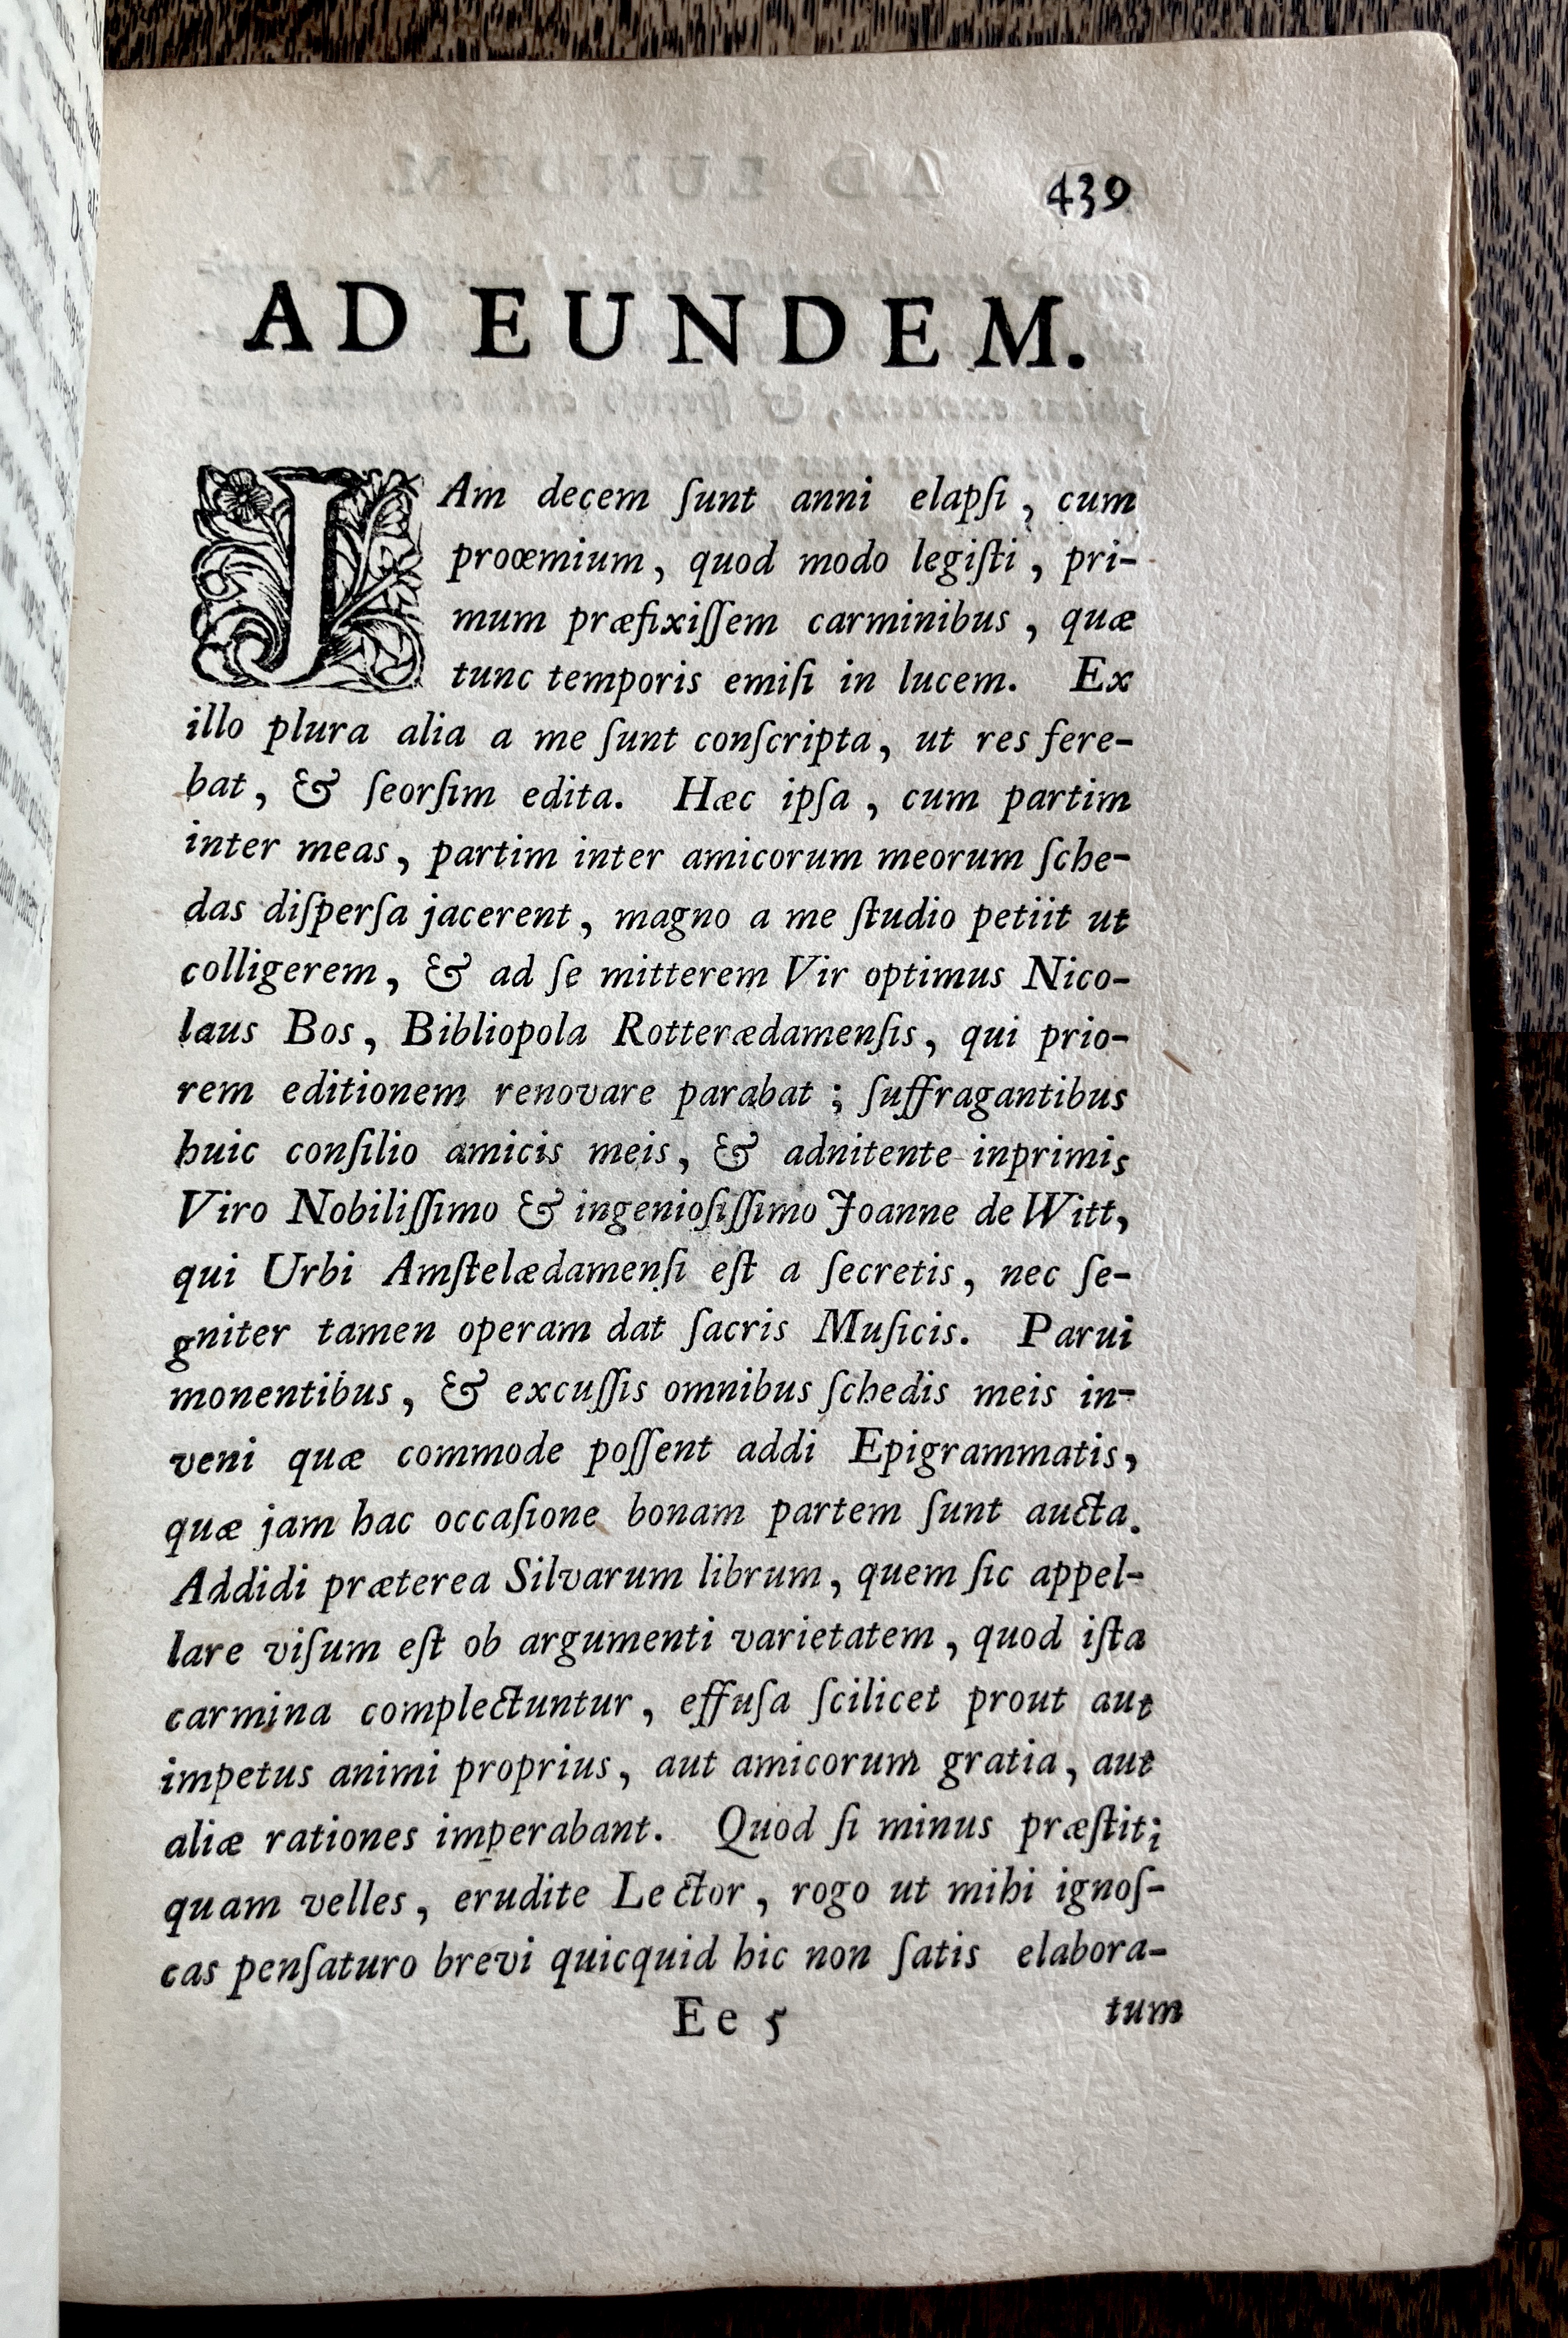 439
AD EUNDEM.
JAm decem ſunt anni elapſi, cum
proœmium, quod modo legiſti, pri-
mum præfixiſſem carminibus, quæ
tunc temporis emiſi in lucem. Ex
illo plura alia a me ſunt conſcripta, ut res fere-
bat, & ſeorſim edita. Hæc ipſa, cum partim
inter meas, partim inter amicorum meorum ſche-
das diſperſa jacerent, magno a me ſtudio petiit ut
colligerem, & ad ſe mitterem Vir optimus Nico-
laus Bos, Bibliopola Rotterædamenſis, qui prio-
rem editionem renovare parabat; ſuffragantibus
huic conſilio amicis meis, & adnitente inprimis
Viro Nobiliſſimo & ingenioſiſſimo Joanne de Witt,
qui Urbi Amſtelædamenſi eſt a ſecretis, nec ſe-
gniter tamen operam dat ſacris Muſicis. Parui
monentibus, & excuſſis omnibus ſchedis meis in-
veni quæ commode poſſent addi Epigrammatis,
quæ jam hac occaſione bonam partem ſunt aucta.
Addidi præterea Silvarum librum, quem ſic appel-
lare viſum eſt ob argumenti varietatem, quod iſta
carmina complectuntur, effuſa ſcilicet prout aut
impetus animi proprius, aut amicorum gratia, aut
aliæ rationes imperabant. Quod ſi minus præſtiti
quam velles, erudite Lector, rogo ut mihi ignoſ-
cas penſaturo brevi quicquid hic non ſatis elabora-
Ee 5 tum